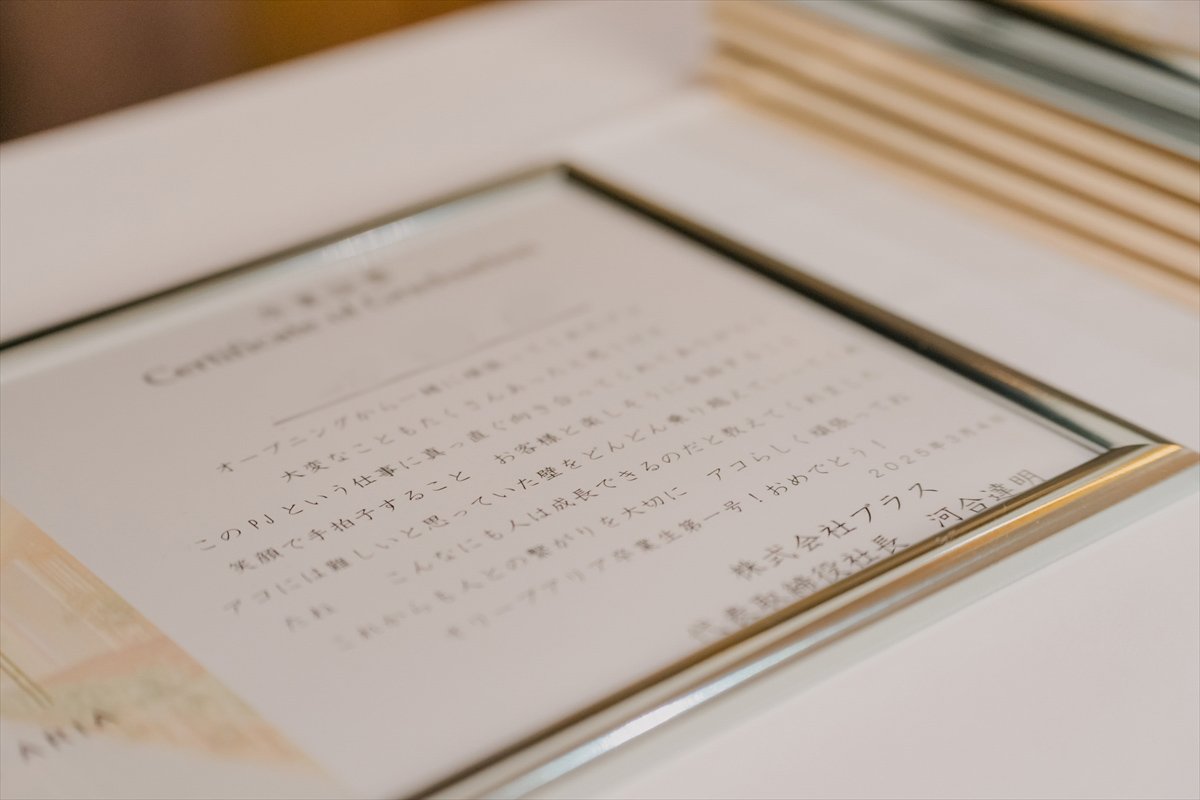 卒業証書
Certificate of Graduation
オープニングから一緒に頑張ってくれて
大変なこともたくさんあったと思うけど
このPJという仕事に真っ直ぐ向き合ってくれてありがとう
笑顔で手拍子すること お客様と楽しそうに会話すること
アコには難しいと思っていた壁をどんどん乗り越えていってくれ
たね こんなにも人は成長できるのだと教えてくれました
これからも人との繋がりを大切に アコらしく頑張ってね
オリーブアリア卒業生第一号！おめでとう！
2025年3月4日
株式会社ブラス
代表取締役社長 河合達明
ARIA